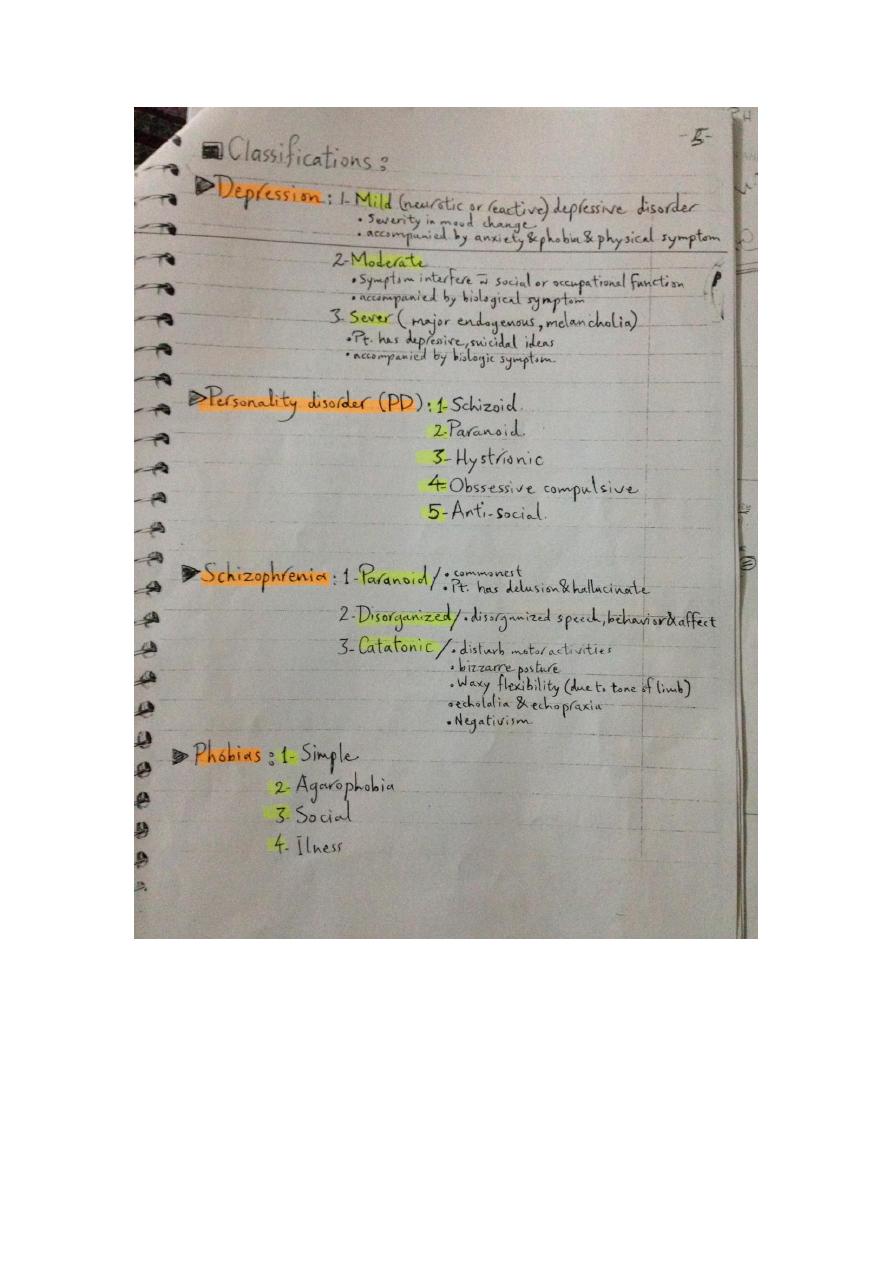 -5-
Classifications:
Depression: 1- Mild (neurotic or reactive) depressive disorder
• Severity in mood change
• accompanied by anxiety & phobia & physical symptom
2- Moderate
• Symptom interfere w̄ social or occupational function
• accompanied by biological symptom
3- Sever ( major endogenous, melancholia)
• Pt. has depressive, suicidal ideas
• accompanied by biologic symptom.
Personality disorder (PD): 1- Schizoid.
2- Paranoid.
3- Hystrionic
4- Obssessive compulsive
5- Anti-social.
Schizophrenia: 1- Paranoid / • commonest
• Pt. has delusion & hallucinate
2- Disorganized / • disorganized speech, behavior & affect
3- Catatonic / • disturb motor activities
• bizzarre posture
• Waxy flexibility (due to tone of limb)
• echolalia & echopraxia
• Negativism
Phobias: 1- Simple
2- Agarophobia
3- Social
4- Ilness